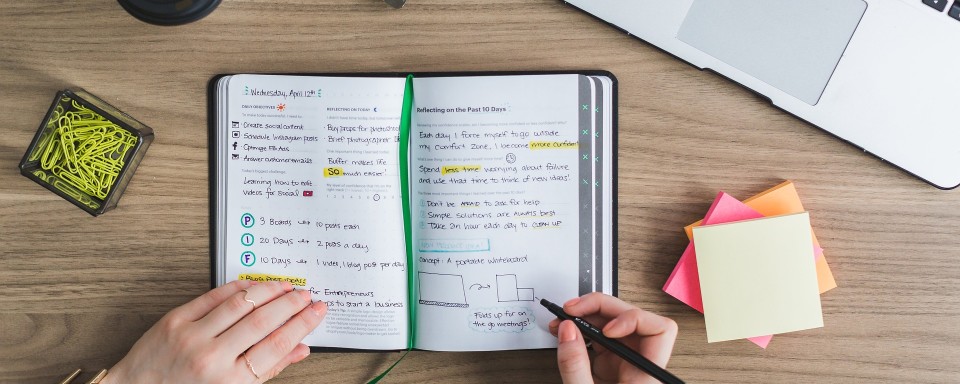 Wednesday, April 12th
DAILY OBJECTIVES
Create social content
Schedule Instagram posts
Optimize FB Ads
Answer customer emails
Today's biggest challenge
Learning how to edit
videos for social!
P 3 Boards 10 posts each
I 20 Days 2 posts a day
F 10 Days 1 video, 1 blog post per day
BLOG POST IDEAS
for Entrepreneurs
to start a business
REFLECTING ON TODAY
Buy props for photoshoot
Brief photographer
Buffer makes life
So much easier!
Reflecting on the Past 10 Days
Each day I force myself to go outside
my comfort zone, I become more confident
Spend less time worrying about failure
and use that time to think of new ideas!
Don't be AFRAID to ask for help
Simple solutions are ALWAYS best
Take an hour each day to CLEAN UP
Concept: A portable whiteboard
Folds up for on
the go meetings!